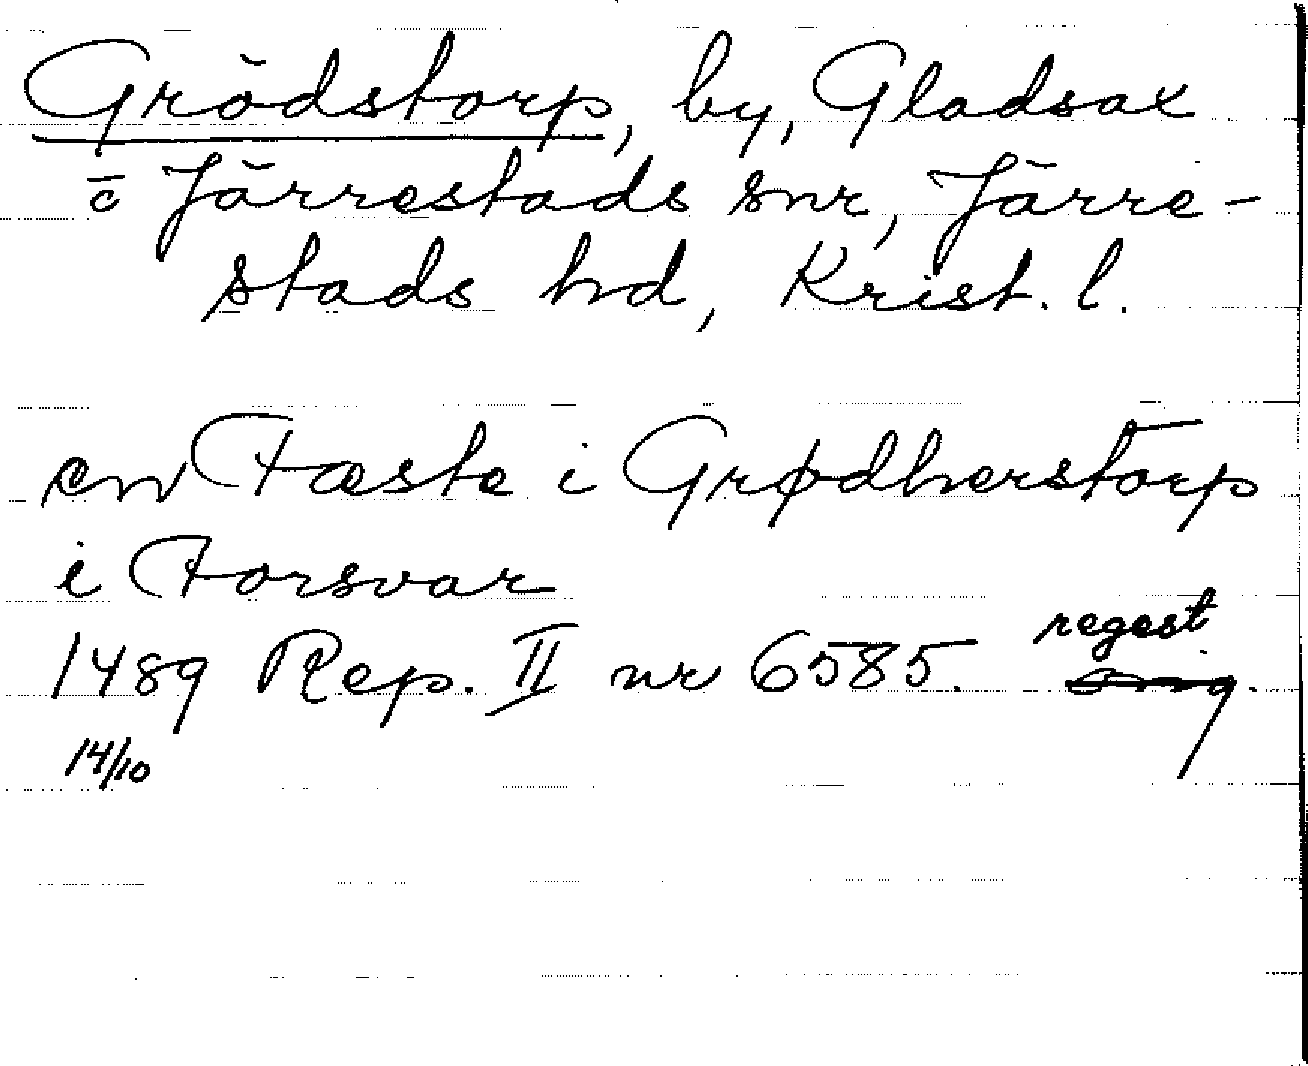 Grödstorp, by, Gladsax
c̄ Järrestads snr, Järre-
stads hd, Krist. l.
en Fæste i Grødherstorp
i Forsvar
regest
1489 Rep. II nr 6585.
14/10